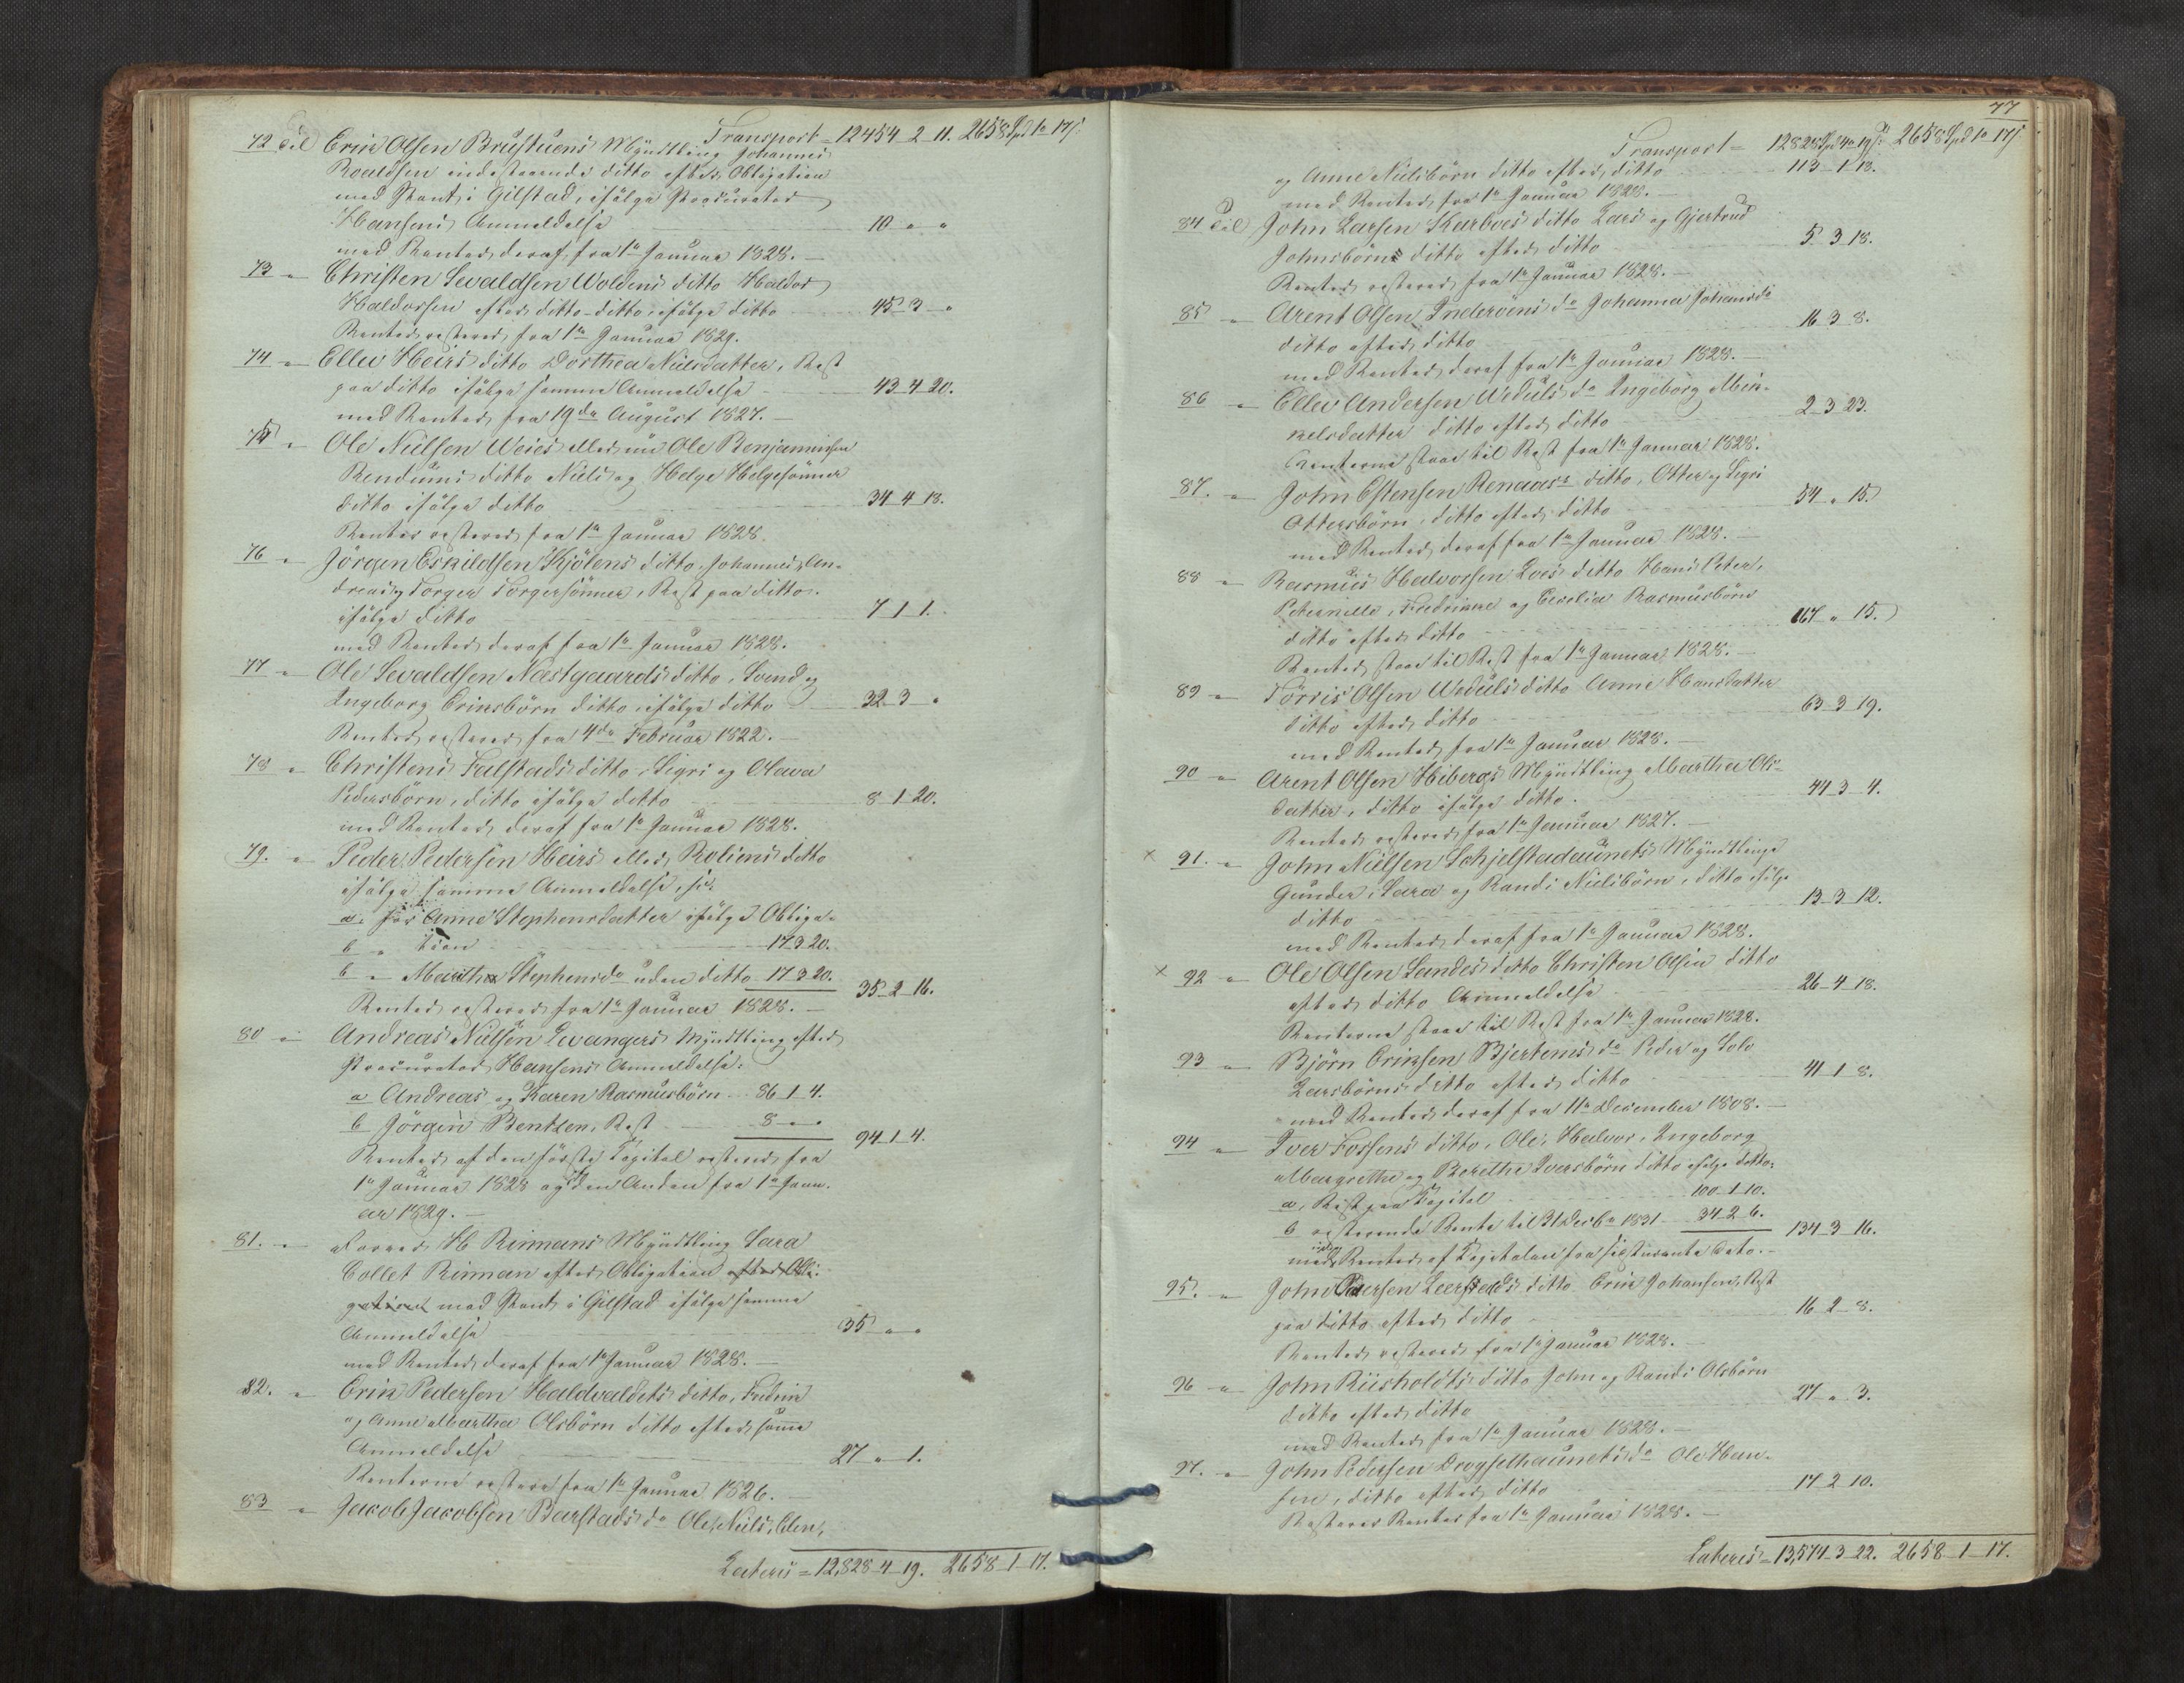 Transport = 12454 - 2 - 11. 2658 Spd 1 " 17 s.
72 Til Erik Olsen Brustuens Myndtling Johannes
Roaldsen indestaaende ditto efter Obligation
med Pant i Gilstad, ifølge Procurator
Hansens Anmeldelse 10 " "
med Renter deraf fra 1te Januar 1828. —
73 " Christen Sevaldsen Woldens ditto Haldor
Haldorsen efter ditto - ditto, ifølge ditto 45 - 3 - "
Renter resterer fra 1te Januar 1829.
74 " Ellev Heirs ditto Dorthea Nielsdatter, Rest
paa ditto ifølge samme Anmeldelse 43 - 4 - 20.
med Renter fra 19de August 1827. —
75 " Ole Nielsen Weies eller nu Ole Benjaminsen
Rendums ditto Niels og Helge Helgesønner
ditto ifølge ditto 34 - 4 - 18.
Renter resterer fra 1te Januar 1828.
76 " Jørgen Eskildsen Kjølens ditto, Johannes, An-
dreas og Torger Torgersønner, Rest paa ditto
ifølge ditto 7 - 1 - 1.
med Renter deraf fra 1te Januar 1828.
77 " Ole Sevaldsen Næstgaards ditto, Svend og
Ingeborg Eriksbörn ditto ifølge ditto 32 - 3 - "
Renter resterer fra 4de Februar 1822. —
78 " Christens Falstads ditto, Sigri og Olava
Pedersbörn, ditto ifølge ditto 8 - 1 - 20.
med Renter deraf fra 1te Januar 1828.
79. " Peder Pedersen Heirs eller Roliens ditto
ifølge samme Anmeldelse,
a. for Anne Stephensdatter ifølge Obliga-
b " tion 17 3 20.
b " Maritha Stephensdr uden ditto 17 3 20. 35 - 2 - 16.
Renter resterer fra 1te Januar 1828. —
80 " Andreas Nielsen Levangers Myndtling efter
Procurator Hansens Anmeldelse:
a Andreas og Karen Rasmusbörn 86 1 4.
b Jörgen Bentzen, Rest 8 " " 94 - 1 - 4.
Renter af den første Capital resterer fra
1te Januar 1828 og den Anden fra 1te Janu-
ar 1829. —
81. " H Rinmans Myndtling Sara
Collet Rinman efter Obligation efter Obli-
gation med Pant i Gilstad ifølge samme
Anmeldelse 35 " "
med Renter deraf fra 1te Januar 1828. —
82. " Erik Pedersen Haldvaldets ditto,
og Anne Martha Olsbörn ditto efter samme
Anmeldelse 27 " 1.
Renterne restere fra 1te Januar 1826. —
83 " Jacob Jacobsen Barstads do Ole, Niels, Elen,
Lateris = 12,828 - 4 - 19. 2658 - 1 - 17.
77
Transport = 12828 Spd 4 " 19 s. 2658 Spd 1 " 17 s.
og Anne Nielsbörn ditto efter ditto 113 - 1 - 13.
med Renter fra 1te Januar 1828. —
84 Til John Larsen Karboes ditto Lars og Gjertrud
Johnsbörn ditto efter ditto 5 3 18.
Renter resterer fra 1te Januar 1828. —
85 " Arent Olsen Inderøens do Johanna Johansdr
ditto efter ditto 16 3 8.
med Renter deraf fra 1te Januar 1828. —
86 " Ellev Andersen Weduls do Ingeborg Min-
kelsdatter ditto efter ditto 2 3 23.
Renterne staae til Rest fra 1te Januar 1828.
87. " John Estensen Renaas's ditto, Otter og Sigri
Ottersbörn, ditto efter ditto 54 " 15
med Renter deraf fra 1te Januar 1828. —
88 " Rasmus Halvorsen Loes ditto Hans Peter,
Pernille, Fredrikke og Cecelia Rasmusbörn
ditto efter ditto 167 " 15.
Renter staae til Rest fra 1te Januar 1828. —
89 " Törris Olsen Weduls ditto Anne Hansdatter
ditto efter ditto 63 3 19.
med Renter fra 1te Januar 1828. —
90 " Arent Olsen Hibergs Myndtling Martha Ols-
datter, ditto ifølge ditto. 44 3 4.
Renter resterer fra 1te Januar 1827. —
× 91. " John Nielsen Schjelstadaunets Myndtlinge
Gunder, Sara og Randi Nielsbörn, ditto ifølge
ditto 13 - 3 - 12.
med Renter deraf fra 1te Januar 1828.
× 92 " Ole Olsen Sandes ditto Christen Olsen ditto
efter ditto Anmeldelse 26 - 4 - 18.
Renterne staae til Rest fra 1te Januar 1828.
93 " Björn Eriksen Bjertems do Peder og Solo
Larsbörns ditto efter ditto 41 1 8.
med Renter deraf fra 11te December 1808. —
94 " Iver Fossens ditto, Ole, Halvor, Ingeborg
Margrethe og Berethe Iversbörn ditto ifølge ditto:
a, Rest paa Capital 100 - 1 - 10.
b resterende Rente til 31 Decbr 1831 34 - 2 - 6. 134 - 3 - 16.
med Renter af Capitalen fra sidstnævnte dato. —
95. " John Leerstads ditto Erik Johansen, Rest
paa ditto efter ditto 16 - 2 - 8.
Renter resterer fra 1te Januar 1828. —
96 " John Riisholdts ditto John og Randi Olsbörn
ditto efter ditto 27 " 3.
med Renter fra 1te Januar 1828. —
97. " John Pedersen Drogsethaunets do Ole Han-
sen, ditto efter ditto 17 2 10.
Resterer Renter fra 1te Januar 1828. —
Lateris = 13,574 - 3 - 22. 2658 - 1 - 17.